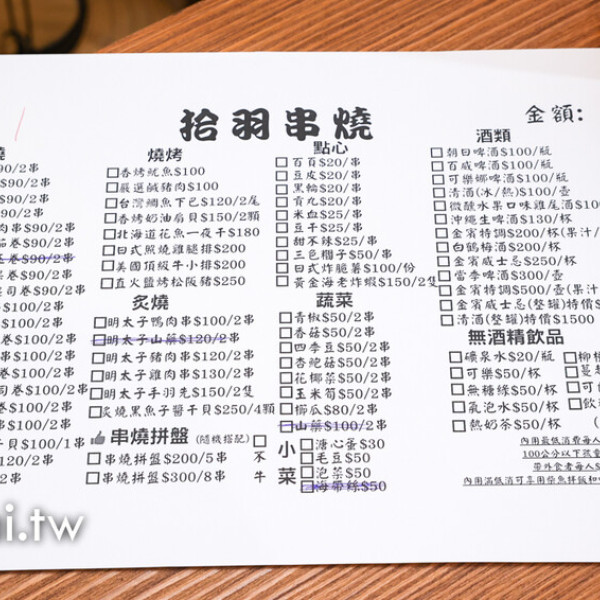 拾羽串燒
金額:
燒
$90/2串
$90/2串
$90/2串
90/2串
肉串$90/2串
茄卷$90/2串
卷$90/2串
卷$90/2串
司卷$90/2串
$100/2串
$100/2串
卷$100/2串
串$100/2串
卷$100/2串
司卷$100/2串
串$100/2串
串$100/2串
串$100/2串
干貝$100/1串
120/2串
2串
燒烤
□香烤魷魚$100
□嚴選鹹豬肉$100
□台灣鯛魚下巴$120/2尾
□香烤奶油扇貝$150/2顆
□北海道花魚一夜干$180
□日式照燒雞腿排$200
□美國頂級牛小排$200
□直火鹽烤松阪豬$250
炙燒
□明太子鴨肉串$100/2串
□明太子山藥$120/2串
□明太子豬肉串$120/2串
□明太子雞肉串$130/2串
□明太子手羽先$150/2隻
□炙燒黑魚子醬干貝$250/4顆
串燒拼盤(隨機搭配)
□串燒拼盤$200/5串
□串燒拼盤$300/8串
□
不
牛
點心
□百頁$20/串
□豆皮$20/串
□黑輪$20/串
□貢丸$20/串
□米血$25/串
□豆干$25/串
□甜不辣$25/串
□三色糰子$50/串
□日式炸脆薯$100/份
□黃金海老炸蝦$150/2隻
蔬菜
□青椒$50/2串
□香菇$50/2串
□四季豆$50/2串
□杏鮑菇$50/2串
□花椰菜$50/2串
□玉米筍$50/2串
□櫛瓜$80/2串
□山藥$100/2串
小菜
□溏心蛋$30
□毛豆$50
□泡菜$50
□海帶絲$50
酒類
□朝日啤酒$100/瓶
□百威啤酒$100/瓶
□可樂娜啤酒$100/瓶
□清酒(冰/熱)$100/壺
□微醺水果口味雞尾酒$100
□沖繩生啤酒$130/杯
□金賓特調$200/杯(果汁/
□白鶴梅酒$200/杯
□金賓威士忌$250/杯
□雷李啤酒$300/壺
□金賓特調$500/壺(果汁
□金賓威士忌(整罐)特價$
□清酒(整罐)特價$1500
無酒精飲品
□礦泉水$20/瓶
□可樂$50/杯
□無糖綠$50/杯
□氣泡水$50/杯
□熱奶茶$50/杯
□柳橙
□蔓
□可
□飲
(
內用最低消費每人$
100公分以下孩童
帶外食者每人$
內用滿低消可享用柴魚拌飯和
i.tw